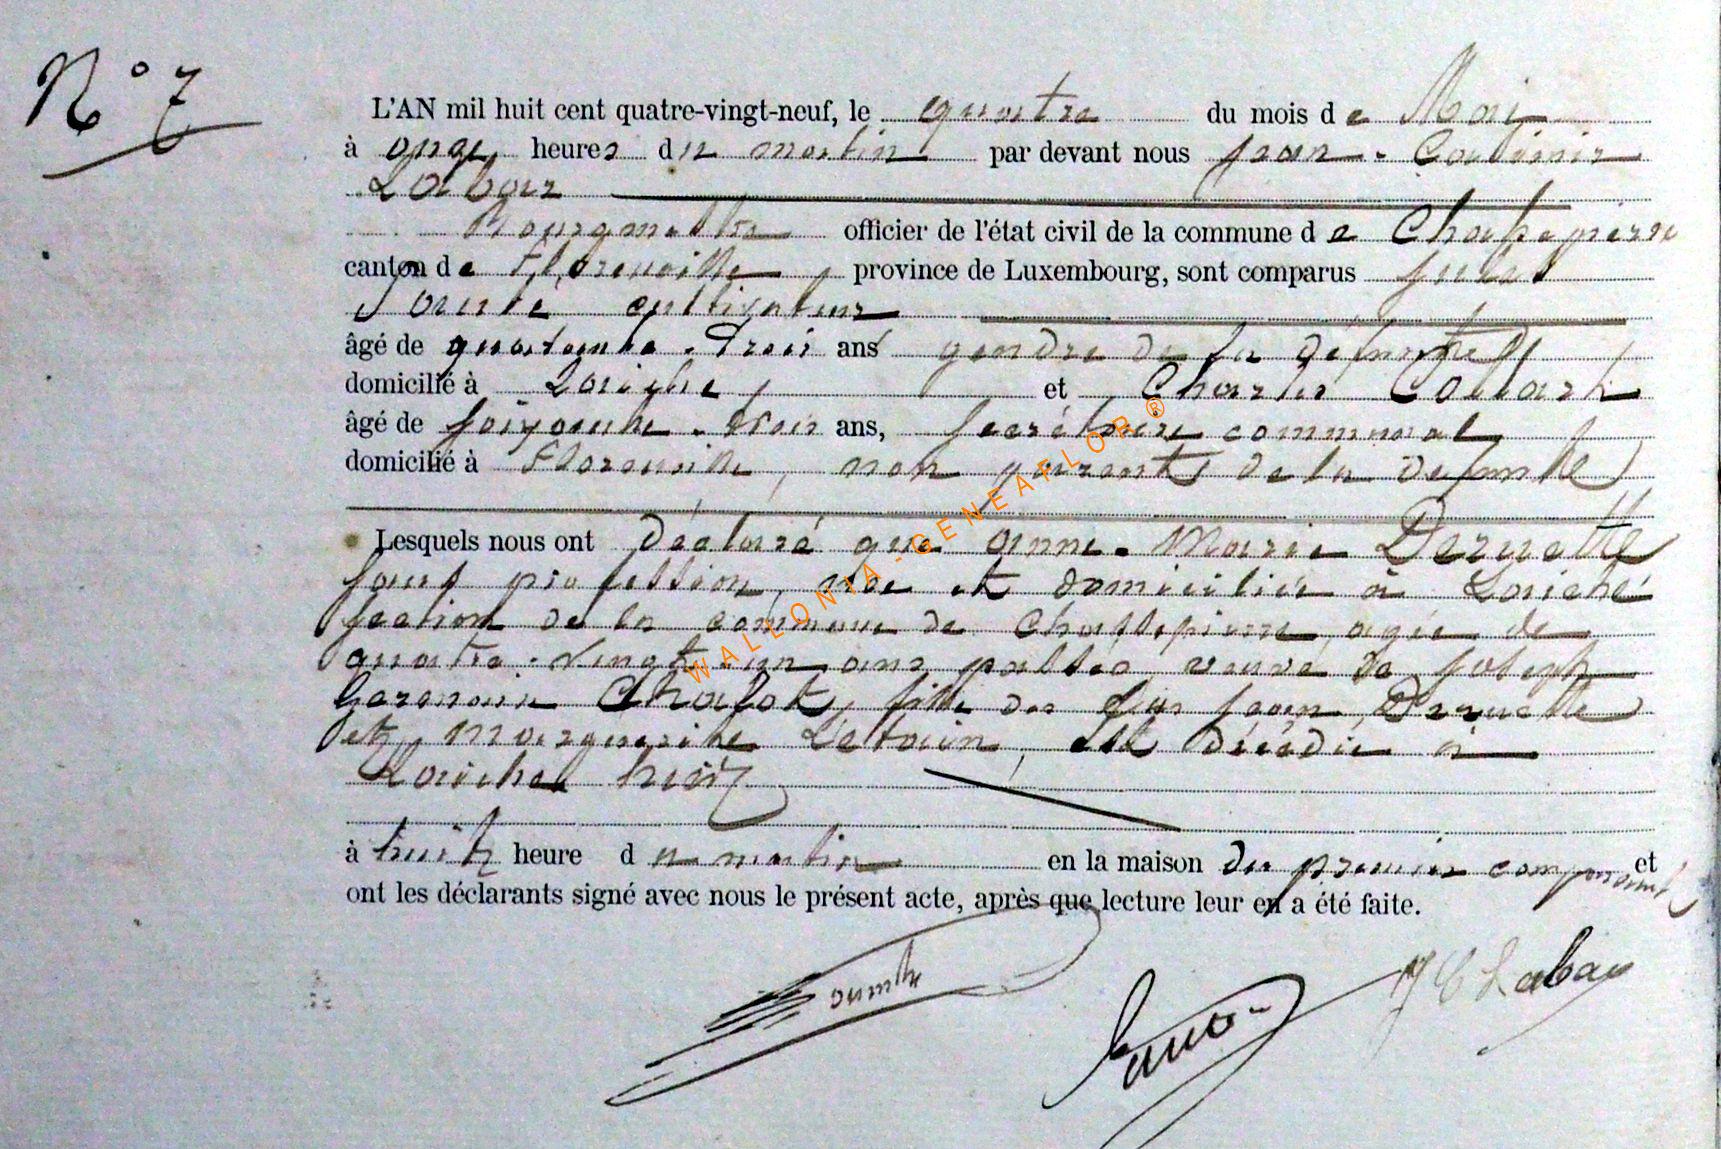 N° 7
L'AN mil huit cent quatre-vingt-neuf, le quatre du mois de Mai
à onze heures du matin par devant nous Jean-Casimir
Labbar
Bourgmestre officier de l'état civil de la commune de Chassepierre
canton de Florenville, province de Luxembourg, sont comparus Jules
cultivateur
âgé de quarante-trois ans gendre de la défunte
domicilié à Laiche, et Charles Collard
âgé de soixante-trois ans, secrétaire communal
domicilié à Florenville, non parents de la défunte
Lesquels nous ont déclaré que Anne-Marie Deruette
sans profession, née et domiciliée à Laiche
section de la commune de Chassepierre, agée de
quatre-vingt-un ans passés veuve de Joseph
fille des feus Jean Deruette
et Marguerite Létain, est décédée à
Laiche hier
à huit heure du matin en la maison du premier comparant et
ont les déclarants signé avec nous le présent acte, après que lecture leur en a été faite.
JC Labar
WALLONIA-GENEAFLOR®